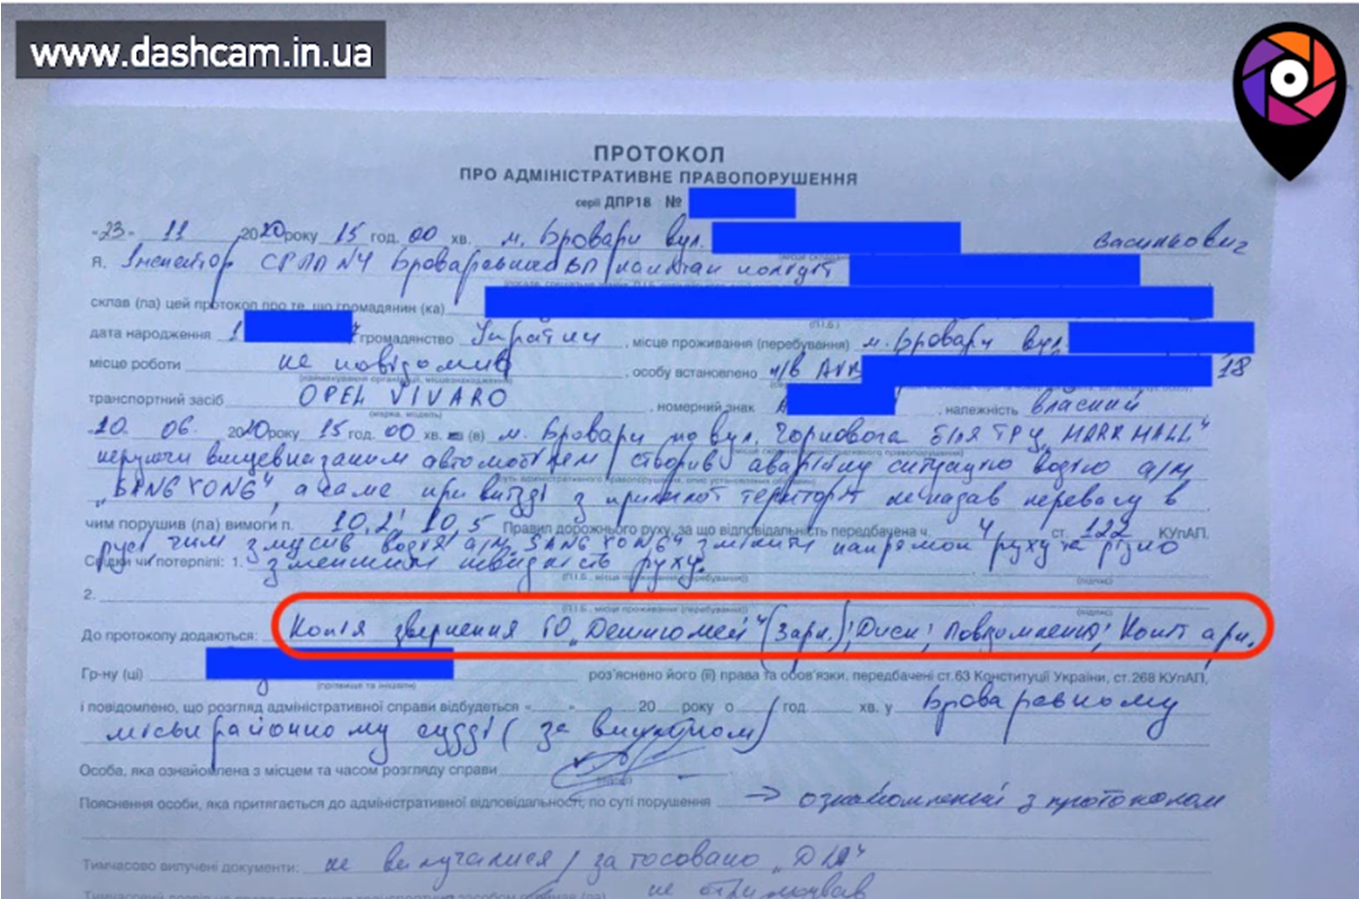 www.dashcam.in.ua
ПРОТОКОЛ
ПРО АДМІНІСТРАТИВНЕ ПРАВОПОРУШЕННЯ
серії ДПР18 №
"23" 11 2020 року 15 год. 00 хв. м. Бровари вул. Васильович
Я, Інспектор СРПП №4 Броварського ВП капітан поліції
склав (ла) цей протокол про те, що громадянин (ка)
(П.І.Б.)
дата народження 1 громадянство України, місце проживання (перебування) м. Бровари вул.
місце роботи не повідомив, особу встановлено п/в 18
транспортний засіб OPEL VIVARO, номерний знак А, належність власний
(марка, модель)
10. 06. 2020 року 15 год. 00 хв. (в) м. Бровари по вул. Чорновола біля ТРЦ "MARK MALL"
керуючи вищевказаним автомобілем створив аварійну ситуацію водію а/м
"SANG YONG", а саме при виїзді з прилеглої території не надав перевагу в
чим порушив (ла) вимоги п. 10.2, 10.5 Правил дорожнього руху, за що відповідальність передбачена ч. 4 ст. 122 КУпАП.
русі чим змусив водія а/м "SANG YONG" змінити напрямок руху та різко
Свідки чи потерпілі: 1. зменшити швидкість руху.
(П.І.Б., місце проживання (перебування)) (підпис)
2.
(П.І.Б., місце проживання (перебування)) (підпис)
До протоколу додаються: Копія звернення (Зари.); Диск; Повідомлення;
Гр-ну (ці) роз'яснено його (її) права та обов'язки, передбачені ст.63 Конституції України, ст.268 КУпАП,
(прізвище та ініціали)
і повідомлено, що розгляд адміністративної справи відбудеться "  " 20 року о год. хв. у Броварському
міськрайонному суді (за викликом)
Особа, яка ознайомлена з місцем та часом розгляду справи
(підпис)
Пояснення особи, яка притягається до адміністративної відповідальності, по суті порушення → ознайомлений з протоколом
Тимчасово вилучені документи: не вилучалися / застосовано
не отримував